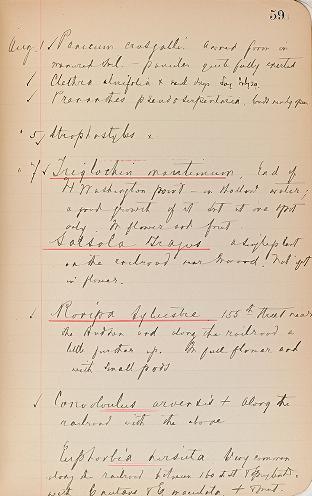 59
Aug. 1 Panicum crusgalli awned form in
manured soil - panicles quite fully exerted
Clethra alnifolia x
Prenanthes
" 5 Strophostyles x
" 7 Triglochin maritimum, End of
Ft Washington point - in shallow water;
a good growth of it but at one spot
only. In flower and fruit.
Salsola Tragus a single plant
on the railroad near Inwood. Not yet
in flower.
Roripa sylvestris 155th Street near
the Hudson and along the railroad a
little further up. In full flower and
with small pods
Convolvulus arvensis + along the
railroad with the above
Euphorbia hirsuta Very common
along the railroad between 160 St &
with & E maculata +